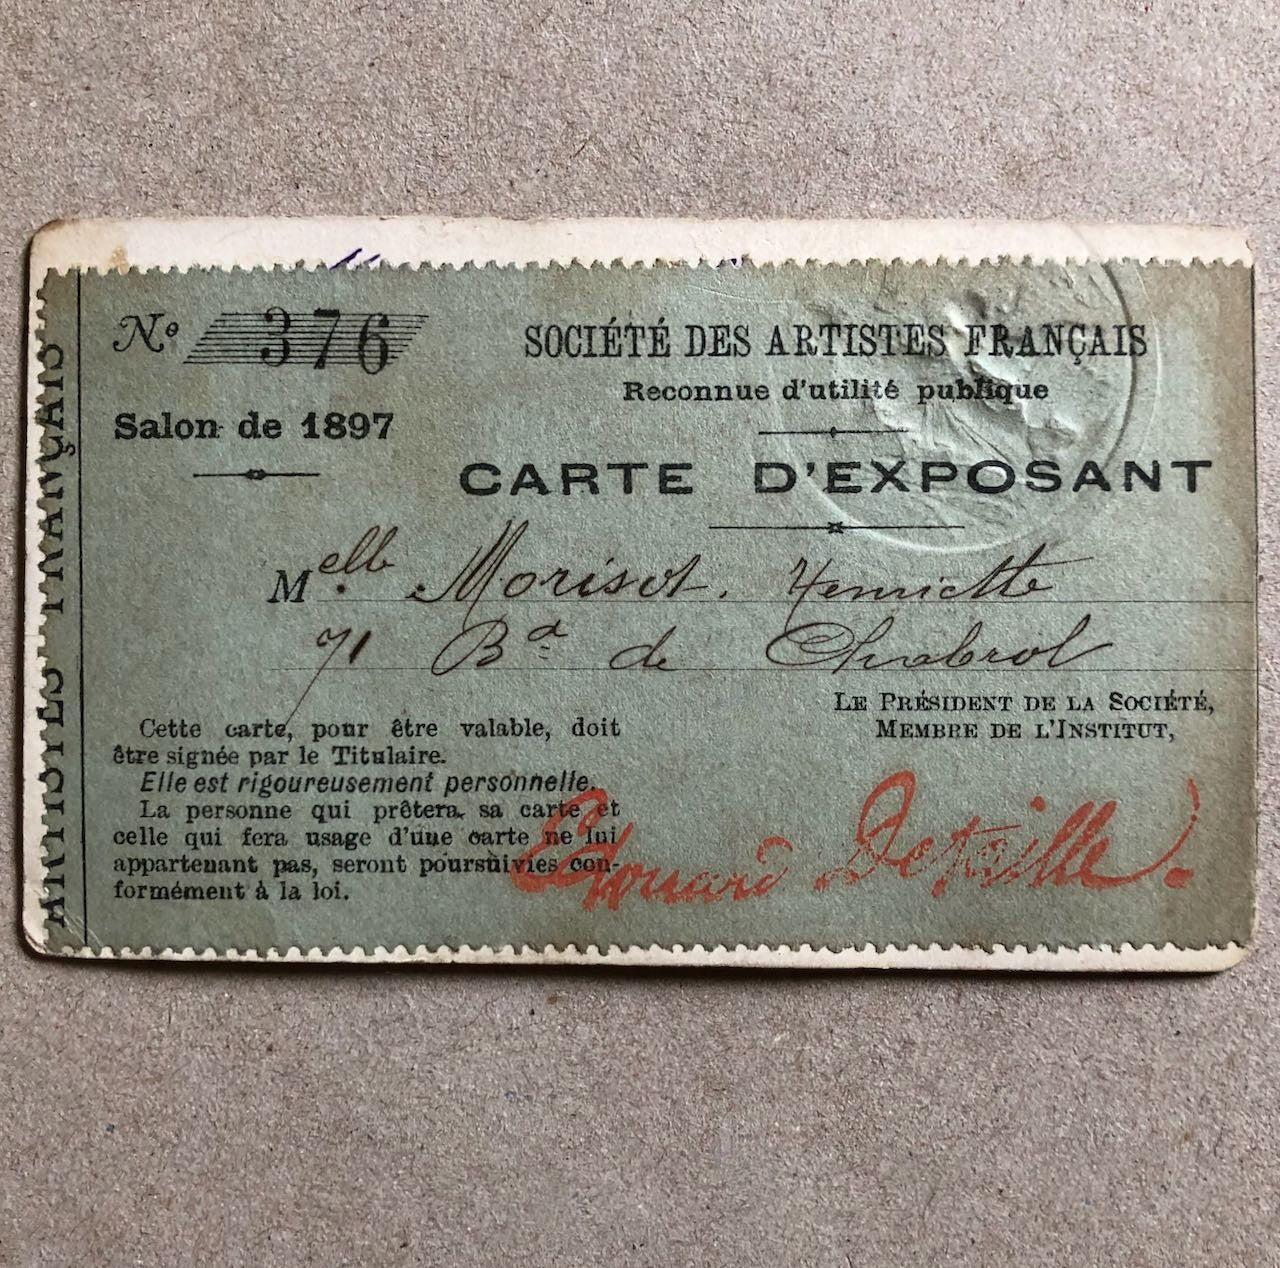 ARTISTES FRANÇAIS
Nº 376
Salon de 1897
SOCIÉTÉ DES ARTISTES FRANÇAIS
Reconnue d'utilité publique
CARTE D'EXPOSANT
Melle Morisot. Henriette
71 Bd de Chabrol
Cette carte, pour être valable, doit
être signée par le Titulaire.
Elle est rigoureusement personnelle.
La personne qui prêtera sa carte et
celle qui fera usage d'une carte ne lui
appartenant pas, seront poursuivies con-
formément à la loi.
LE PRÉSIDENT DE LA SOCIÉTÉ,
MEMBRE DE L'INSTITUT,
Edouard Detaille.